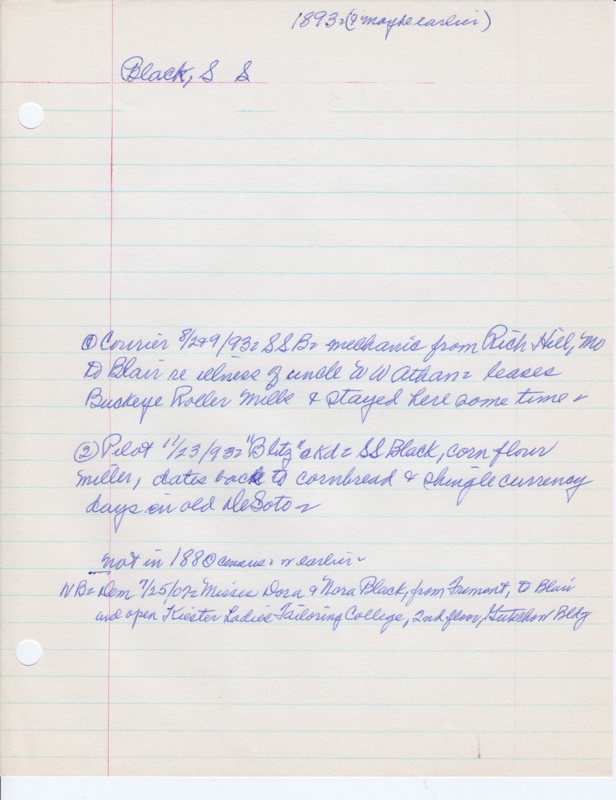 1893 = (? maybe earlier)
Black, S S
① Courier 8/2&9/93 = SSB = mechanic from Rich Hill, Mo
to Blair re illness of uncle W W Athan = leases
Buckeye Roller Mills & stayed here some time =
② Pilot 11/23/93 = "Blitz" ckd = SS Black, corn flour
miller, dates back to cornbread & shingle currency
days in old DeSoto =
not in 1880 census = or earlier =
NB = Dem 7/25/07 = Misses Dora & Nora Black, from Fremont, to Blair
and open Kiester Ladies Tailoring College, 2nd floor, Bldg